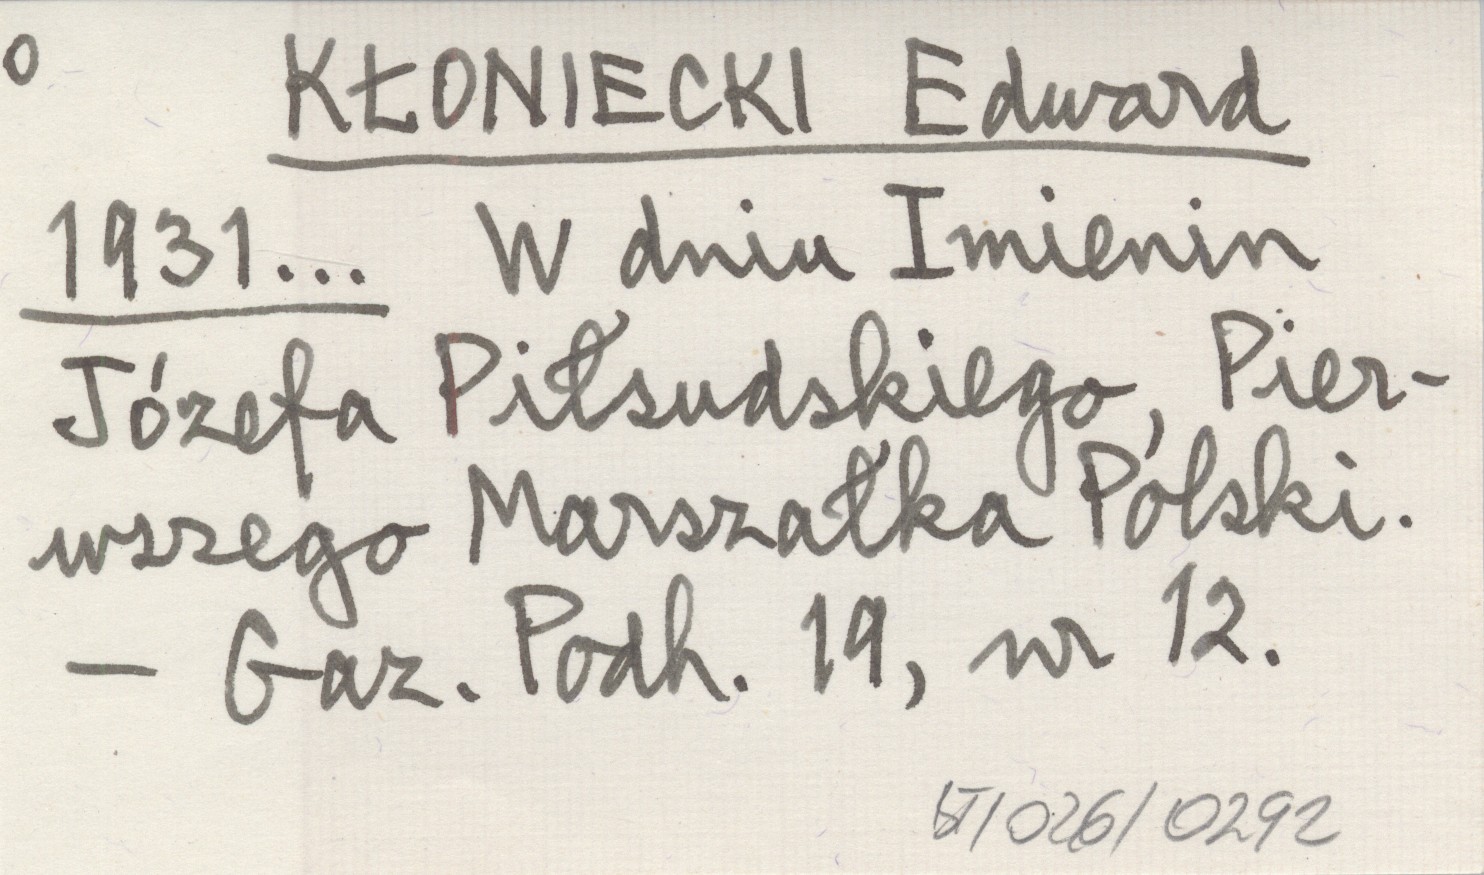 o KŁONIECKI Edward
1931... W dniu Imienin
Józefa Piłsudskiego, Pier-
wszego Marszałka Polski.
— Gaz. Podh. 19, nr 12.
/026/0292